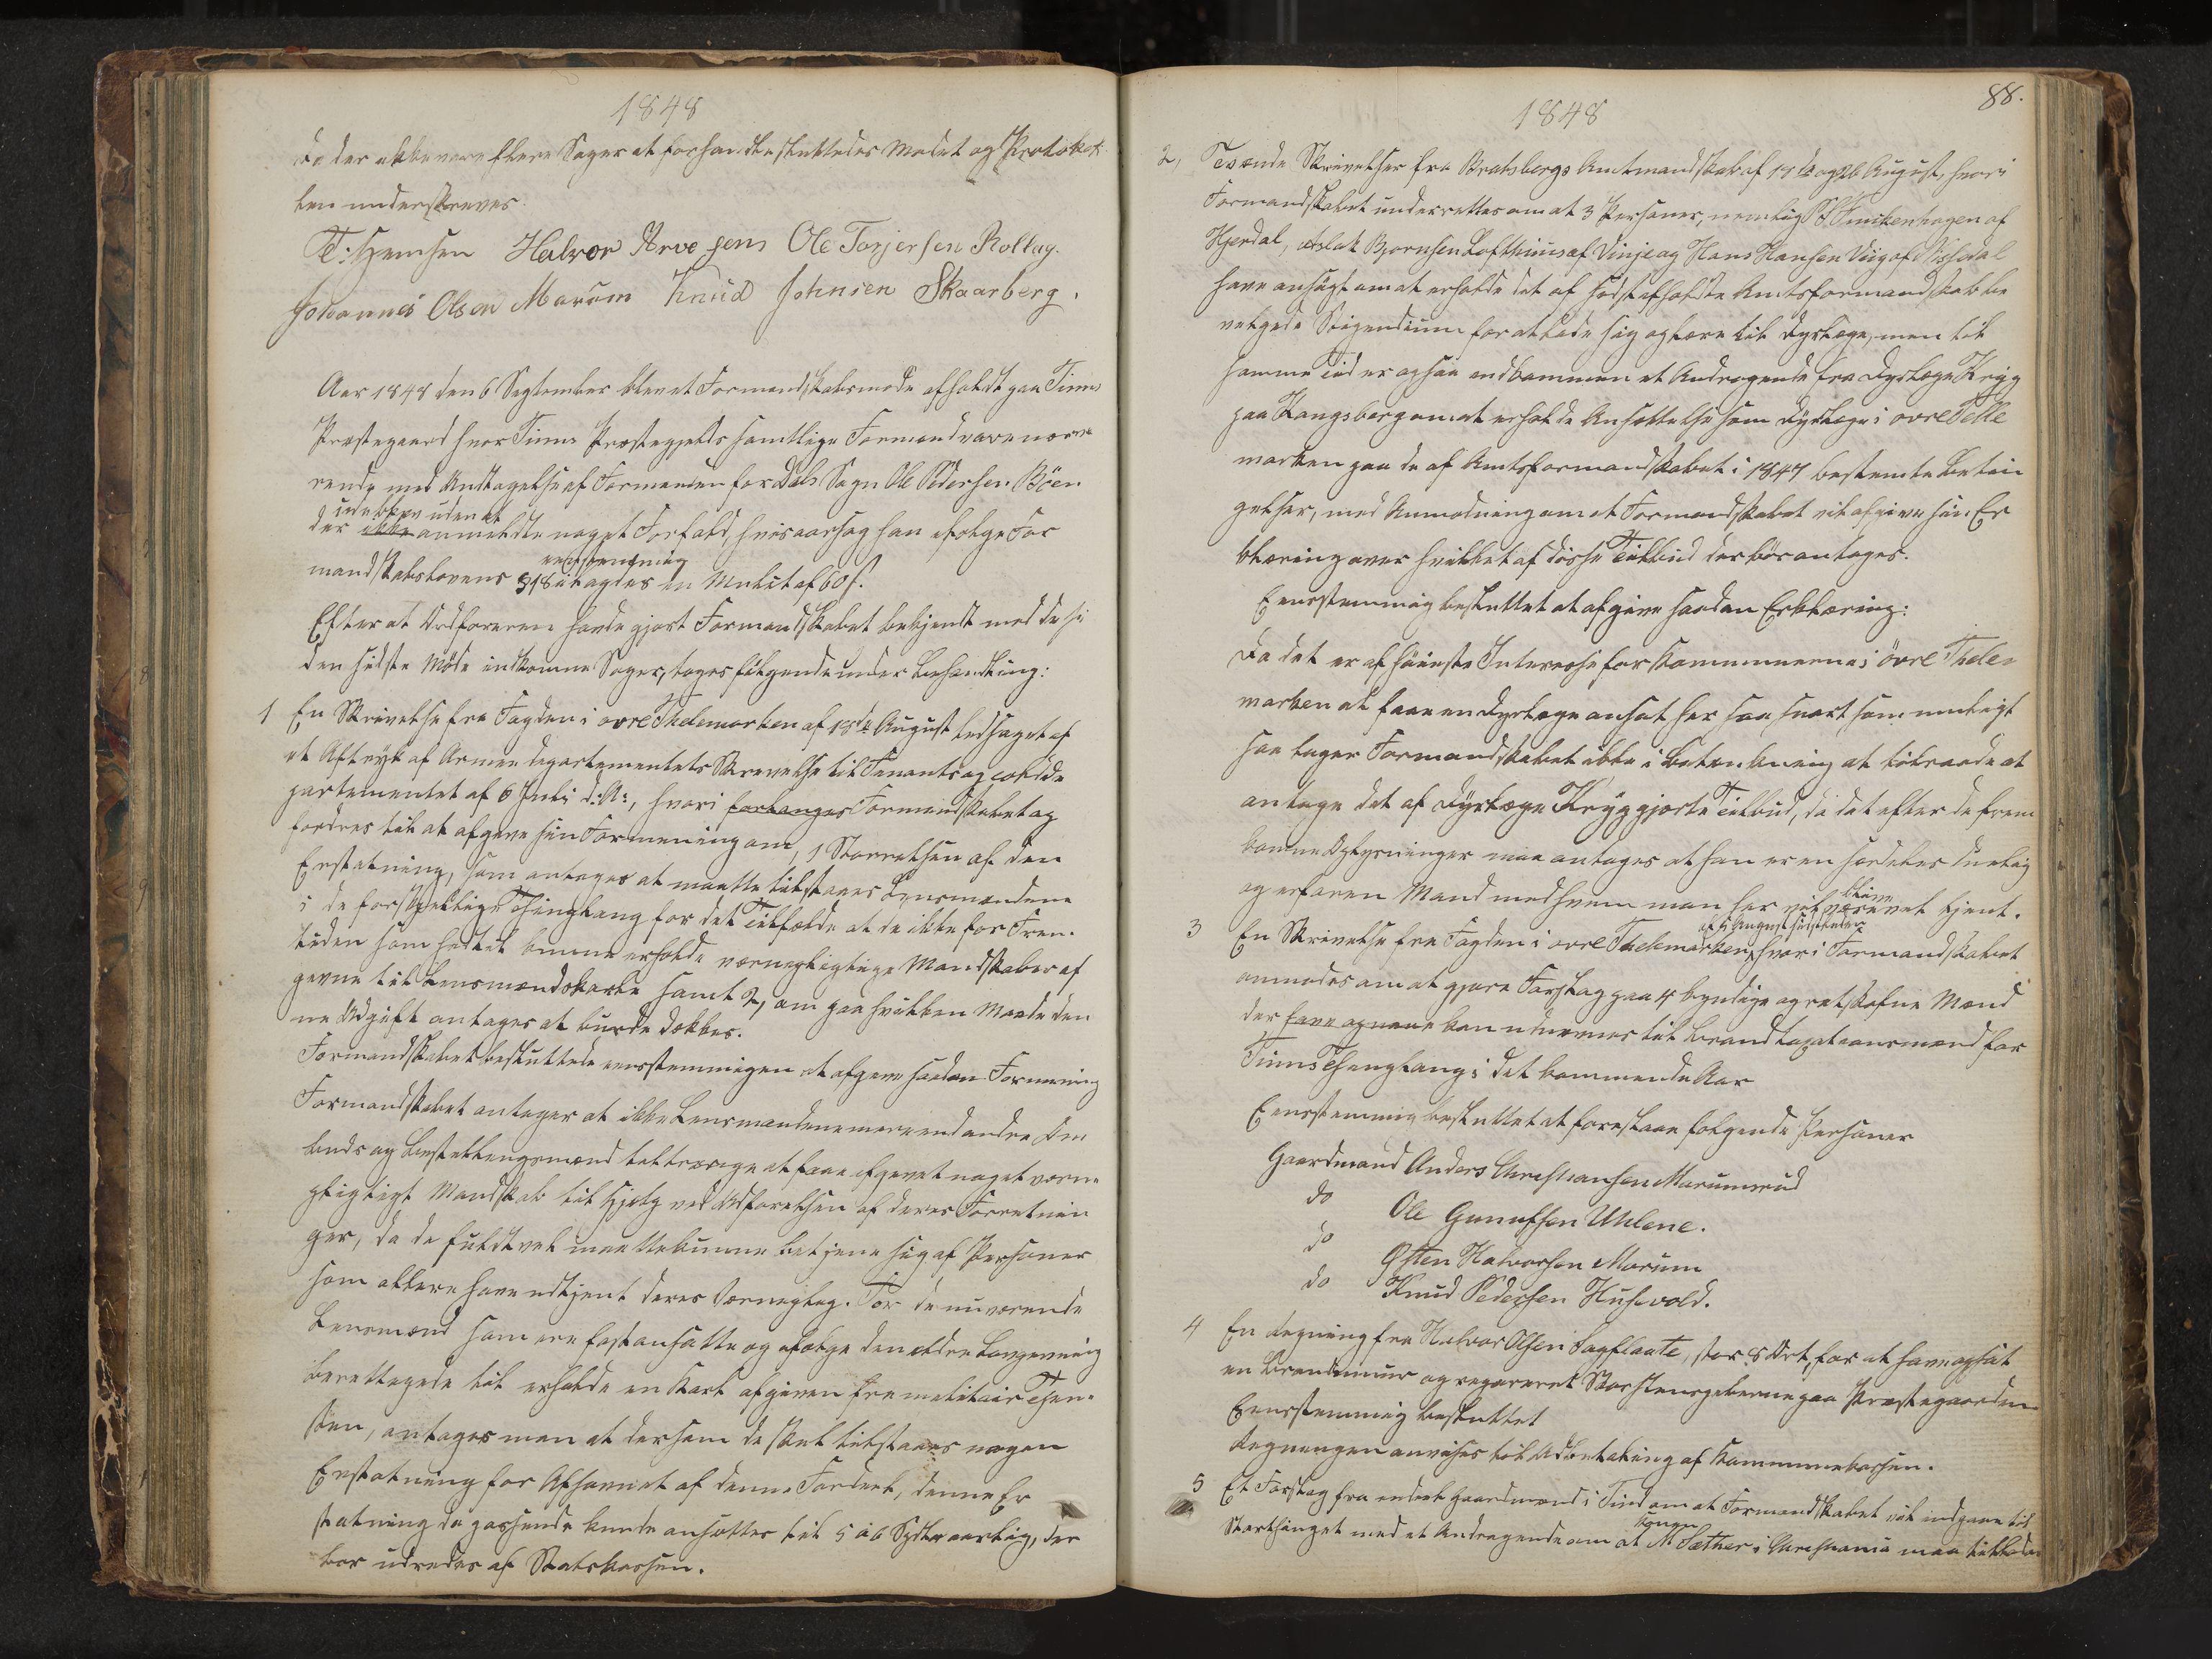 1848
Da der ikke vare flere Sager at forhandle sluttedes Mødet og Protokol
len underskreves.
T: Hemsen Halvor Arvesen Ole Torjersen Rollag.
Johannes Olsen Marum Knud Johnsen Skaarberg.
Aar 1848 den 6 September blev et Formandskabsmøde afholdt paa Tinns
Præstegaard hvor Tinns Præstegjelds samtlige Formænd vare nærvæ
rende med Undtagelse af Formanden for Dals Sogn Ole Pedersen Böen
udeblev uden at
der ikke anmeldte noget Forfald, hvisaarsag han ifølge For
eenstemmig
mandskabslovens §18 ilagdes en Mulct af 60 s.
Efter at Ordføreren havde gjort Formandskabet bekjendt med de si
den sidste Möde indkomne Sager, toges følgende under Behandling:
1 En Skrivelse fra Fogden i øvre Thelemarken af 18de August ledsaget af
et Aftryk af Armee Departementets Skrivelse til Finants og Tolde
partementet af 6 Juli d: A:, hvori forlanges Formandskabet op
fordres til at afgive sin Formening om, 1 Størrelsen af den
Erstatning, som antages at maatte tilstaaes Lensmændene
i de forskjellige Thinglaug for det Tilfælde at de ikke for Frem-
tiden som hidtil kunne erholde værnepligtige Mandskaber af
givne til Lensmandskarle samt 2, om paa hvilken Maade den
ne Udgift antages at burde dækkes.
Formandskabet besluttede eenstemmigen at afgive saadan Formening
Formandskabet antager at ikke Lensmændene mere end andre Em
beds og Bestillingsmænd tiltrænge at faae afgivet noget værne
pligtigt Mandskab til Hjelp ved Udførelsen af deres Forretnin
ger, da de fuldtvel maatte kunne betjene sig af Personer
som allere have udtjent deres Værnepligt. For de nuværende
Lensmænd som ere fastansatte og ifølge den ældre Lovgivning
berettigede til erholde en Karl afgiven fra militair Tjene-
sten, antager man at dersom de skal tilstaaes nogen
Erstatning for Afsavnet af denne Fordeel, denne Er
statning da passende kunde ansættes til 5 à 6 Spdlr aarlig, der
bør udredes af Statskassen.
88.
1848
2, Tvende Skrivelser fra Bratsbergs Amtmandskab af 17de og 26 August, hvori
Formandskabet underrettes om at 3 Personer, nemlig Finckenhagen af
Hjerdal, Aslak Bjørnsen Lofthuus af Vinje og Hans Hansen Viig af Nissedal
have ansögt om at erholde det af sidst afholdte Amtsformandskab be
vilgede Stipendium for at lade sig oplære til Dyrlæge, men til
samme Tid er ogsaa indkommen et Andragende fra Dyrlæge Kryg
paa Kongsberg om at erholde Ansættelse som Dyrlæge i øvre Telle
marken paa de af Amtsformandskabet i 1847 bestemte Betin
gelser, med Anmodning om at Formandskabet vil afgive sin Er
klæring over hvilket af disse Tilbud der bör antages.
Eenstemmig besluttet at afgive saadan Erklæring:
Da det er af höieste Interesse for Kommunerne i övre Thele
marken at faae en Dyrlæge ansat her saa snart som muligt
saa tager Formandskabet ikke i Betænkning at tilraade at
antage det af Dyrlæge Kryg gjorte Tilbud, da det efter de frem
komne Oplysninger maa antages at han er en særdeles duelig
blive
og erfaren Mand med hvem man her vil være vel tjent.
af 5 August sidstleden
3 En Skrivelse fra Fogden i øvre Thelemarken, hvori Formandskabet
anmodes om at gjøre Forslag paa 4 kyndige og retskafne Mænd
der kan udnævnes til Brandtaxationsmænd for
Tinns Thinglaug i det kommende Aar
Eenstemmig besluttet at foreslaae følgende Personer
Gaardmand Anders Christiansen Marumsrud
do Ole Gunulfsen Uhlene.
do Østen Halvorsen Marum
do Knud Pedersen Husevold.
4 En Regning fra Halvor Olsen Sagflaate, stor 8 Ort, for at have opsat
en Brandmuur og repareret Skorstenspiberne paa Præstegaarden
Eenstemmig besluttet
Regningen anvises til Udbetaling af Kommunekassen.
5 Et Forslag fra endeel Gaardmænd i Tind om at Formandskabet vil indgaae til
Storthinget med et Andragende om at M Sæther i Christiania maa tillades